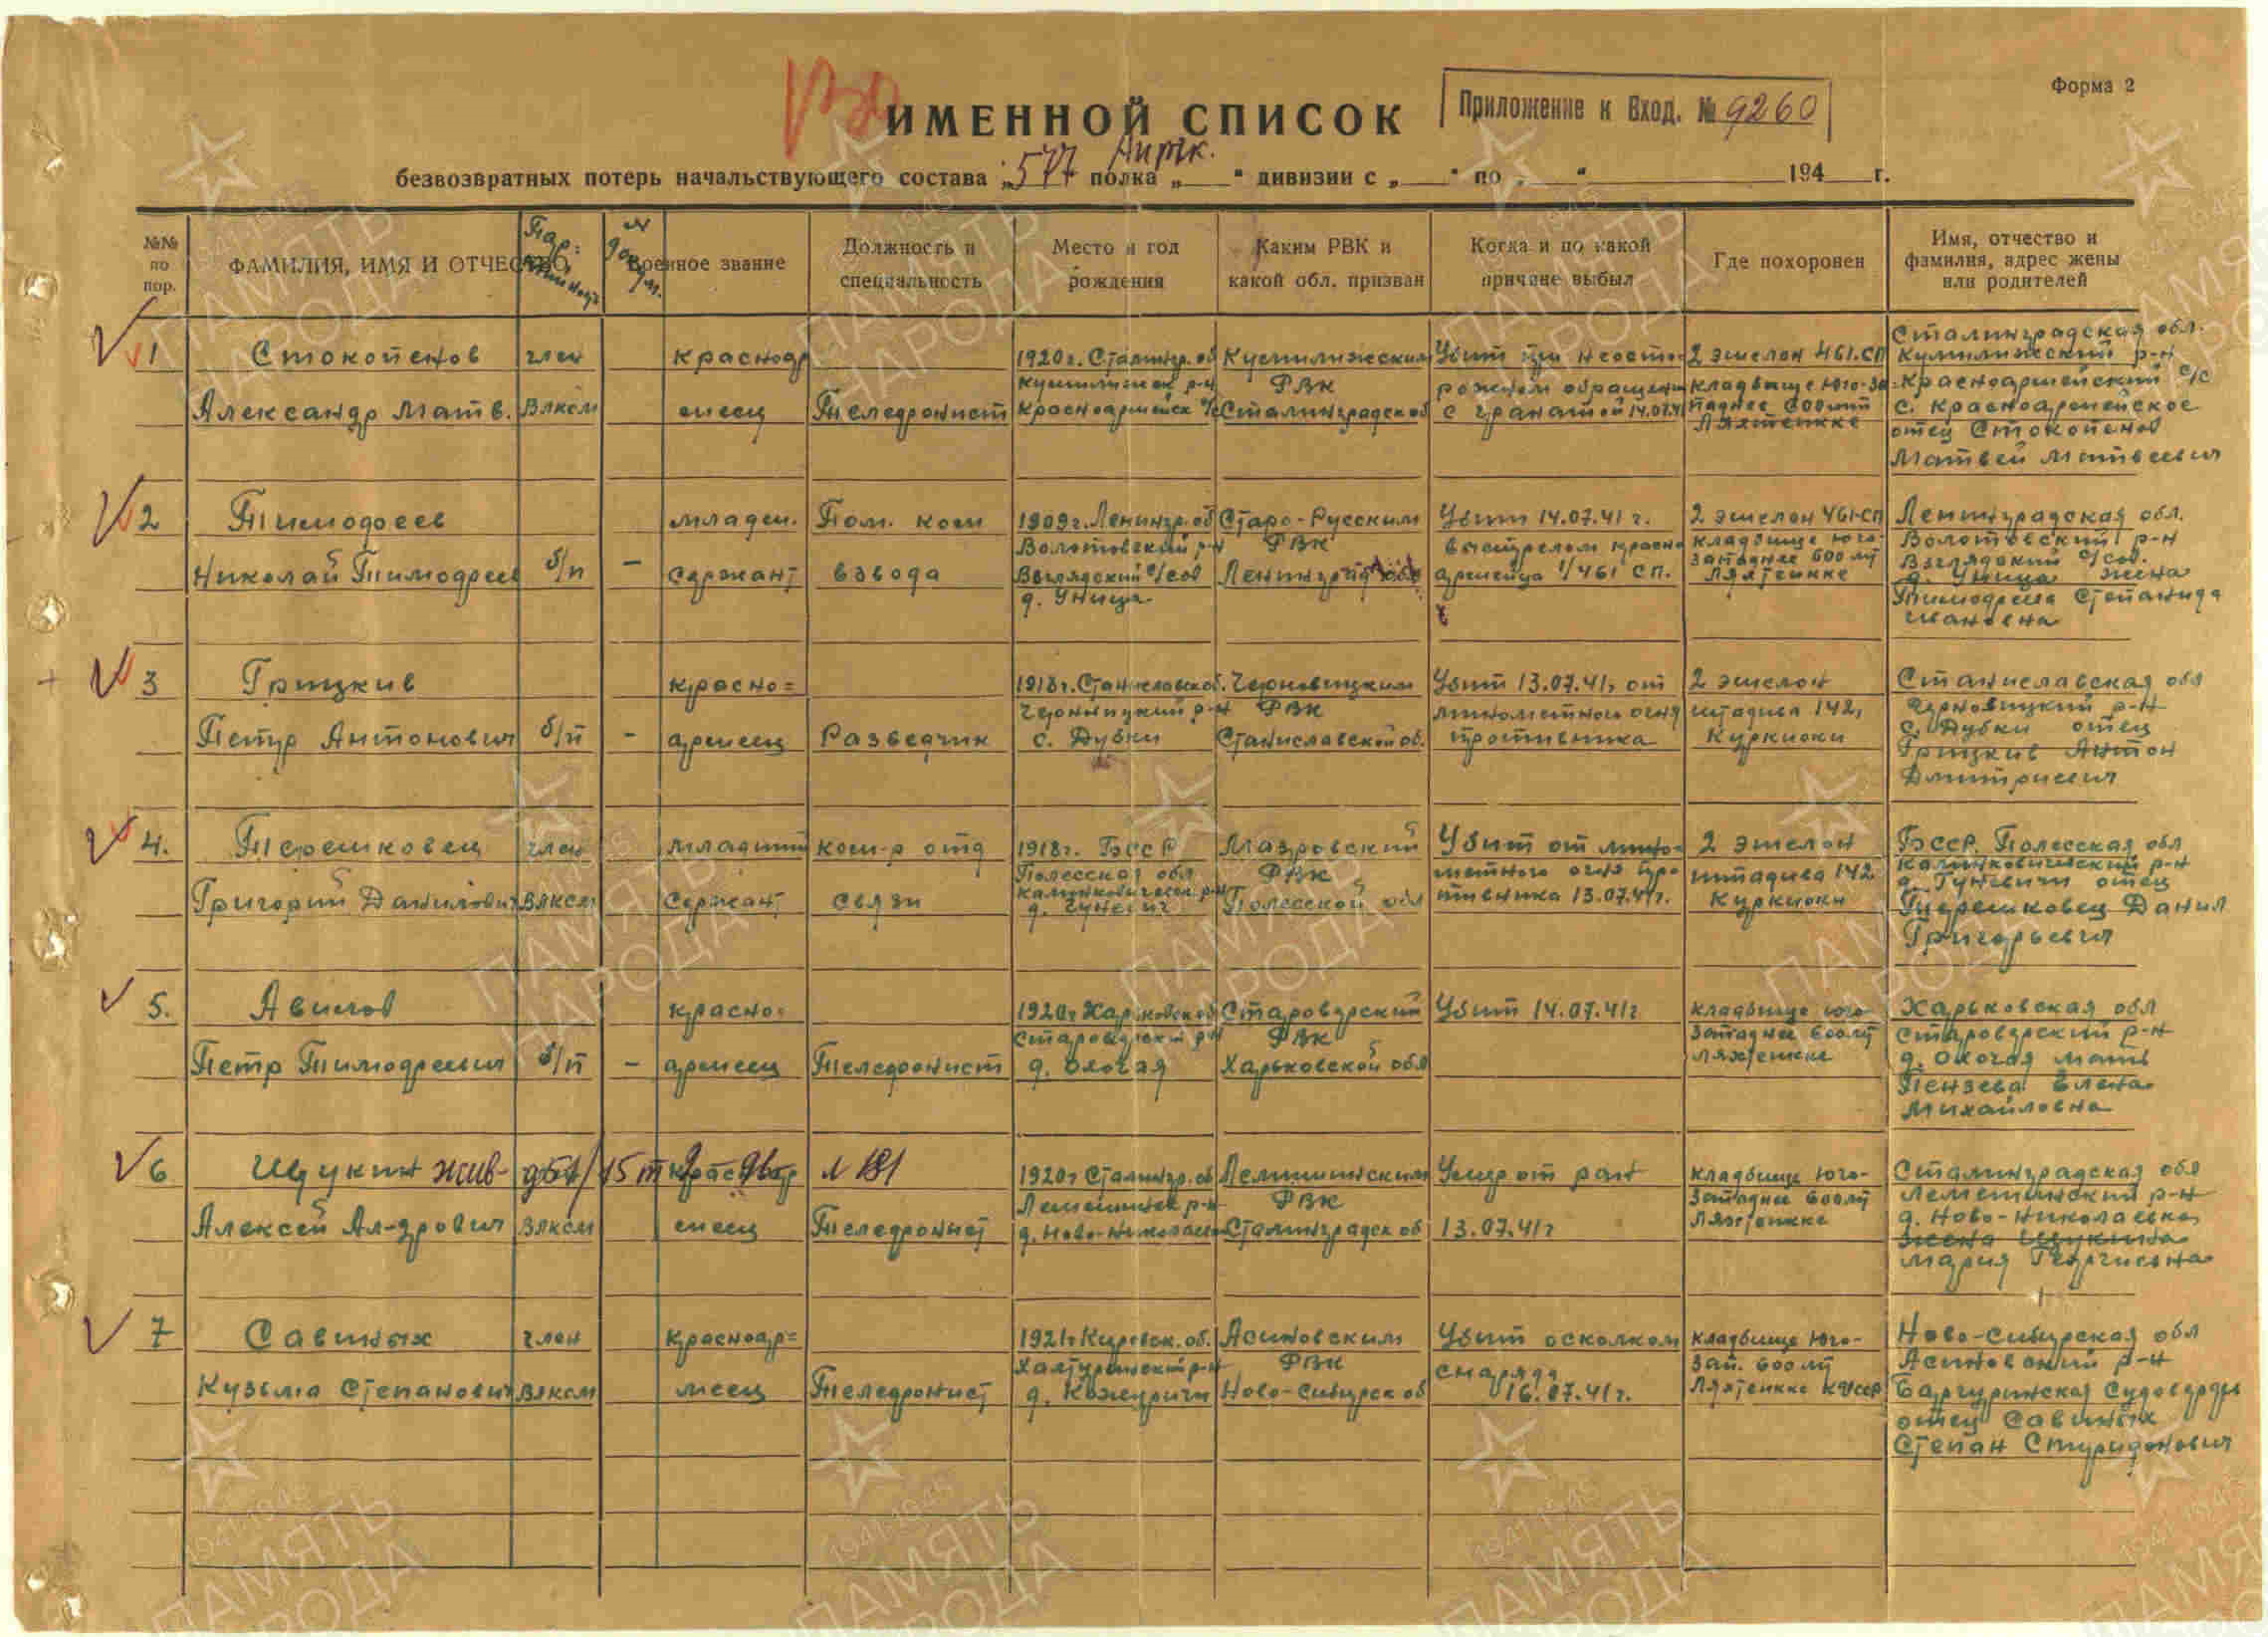 Форма 2
ИМЕННОЙ СПИСОК
Приложение к Вход. № 9260
безвозвратных потерь начальствующего состава „577 полка „ “ дивизии с „ “ по „ “ 194 г.
№№ по пор.
ФАМИЛИЯ, ИМЯ И ОТЧЕСТВО
Военное звание
Должность и специальность
Место и год рождения
Каким РВК и какой обл. призван
Когда и по какой причине выбыл
Где похоронен
Имя, отчество и фамилия, адрес жены или родителей
1
Стокопенов
Александр Матв.
член
ВЛКСМ
Красноар
меец
Телефонист
1920 г. Сталингр. об
Красноармейск с/с
РВК
Сталинградск об
Убит при неосто-
рожном обращени
с гранатой 14.07.41
2 эшелон 461 СП
кладбище юго-за-
паднее 600 мт
Ляхтенкке
Сталинградская обл.
р-н
Красноармейский с/с
с. Красноармейское
отец Стокопенов
Матвей Матвеевич
2
Тимофеев
Николай Тимофеев
б/п
–
младш.
сержант
Пом. ком
взвода
1909 г. Ленингр. об
Волотовский р-н
Взглядский с/сов
д. Уница
Старо-Русским
РВК
Ленинград обл
Убит 14.07.41 г.
выстрелом красно
армейца 1/461 сп.
2 эшелон 461 СП
кладбище юго-
западнее 600 мт
Ляхтенкке
Ленинградская обл.
Волотовский р-н
Взглядский с/сов.
д. Уница жена
Тимофеева Степанида
Ивановна
3
Грицкив
Петр Антонович
б/п
–
красно=
армеец
Разведчик
1918 г. Станиславск об.
Черновицкий р-н
с. Дубки
Черновицким
РВК
Станиславской об.
Убит 13.07.41г от
минометного огня
противника
2 эшелон
штадива 142,
Куркиоки
Станиславская обл
Черновицкий р-н
с. Дубки отец
Грицкив Антон
Дмитриевич
4.
Терешковец
Григорий Данилович
член
ВЛКСМ
младший
сержант
ком-р отд
связи
1918 г. БССР
Полесская обл
Калинковическ р-н
д. Гуневич
Мазровский
РВК
Полесской обл
Убит от мино-
метного огня про
тивника 13.07.41г.
2 эшелон
штадива 142
Куркиоки
БССР. Полесская обл
Калинковичский р-н
д. Гуневичи отец
Терешковец Данил
Григорьевич
5.
Авилов
Петр Тимофеевич
б/п
–
красно-
армеец
Телефонист
1920г Харьковск об
Староверский р-н
д. Охочая
Староверский
РВК
Харьковской обл
Убит 14.07.41г
кладбище юго
западнее 600 мт
Ляхтенкке
Харьковская обл
Староверский р-н
д. Охочая мать
Пензева Елена
Михайловна
6
Щукин жив-
Алексей Ал-дрович
ВЛКСМ
меец
Телефонист
1920г Сталингр. об
р-н
д. Ново-Николаевк
РВК
Сталинградск об
Умер от ран
13.07.41г
кладбище юго-
западнее 600 мт
Ляхтенкке
Сталинградская обл
р-н
д. Ново-Николаевка
жена Щукина
Мария Георгиевна
7
Савиных
Кузьма Степанович
член
ВЛКСМ
Красноар=
меец
Телефонист
1921г Кировск. об.
Халтуринский р-н
д. Кожуричи
Асиновским
РВК
Ново-Сибирск об
Убит осколком
снаряда
16.07.41г.
кладбище юго-
зап. 600 мт
Ляхтенкке КФССР
Ново-Сибирская обл
Асиновский р-н
отец Савиных
Степан Спиридонович